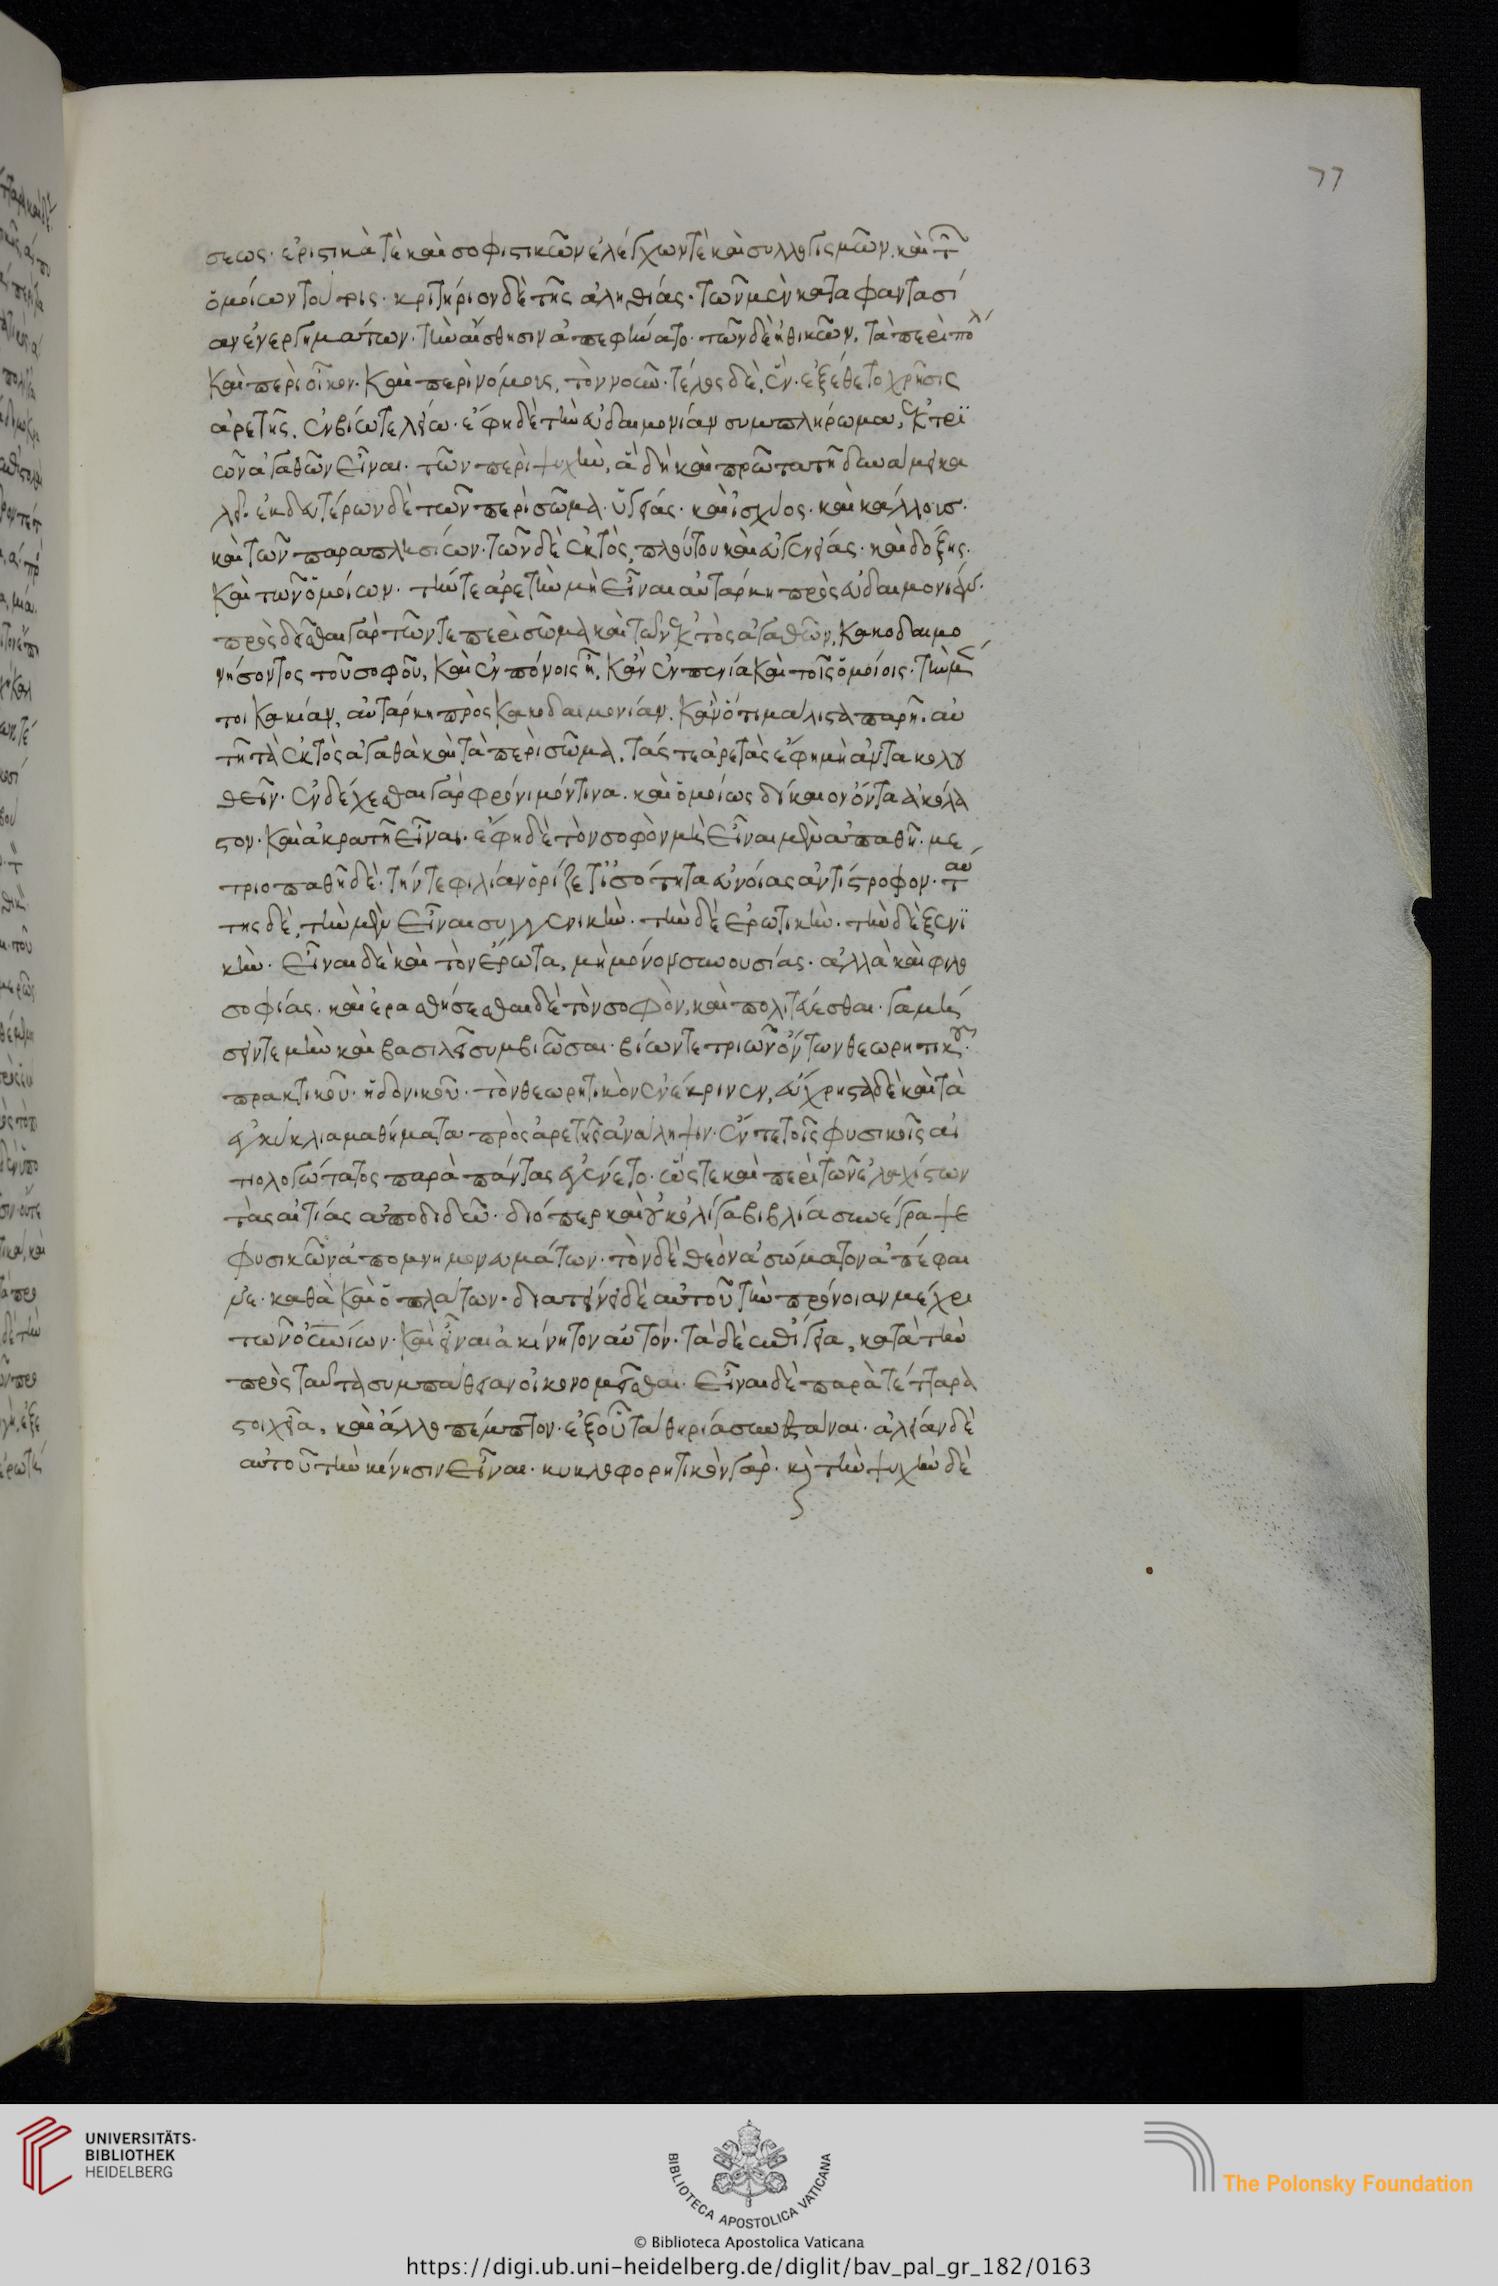 77
σεως· ἐριστικά τὲ καὶ σοφιστικῶν ἐλέγχων τὲ καὶ συλλογισμῶν. καὶ τ̑
ὁμοίων τούτοις· κριτήριον δὲ τῆς ἀληθείας· τῶν μὲν κατα φαντασί
αν ἐνεργημάτων· τὴν αἴσθησιν ἀπεφήνατο· τῶν δὲ ἠθικῶν, τὰ περὶ πολ
καὶ περὶ οἶκον· καὶ περὶ νόμους, τὸν νοῦν· τέλος δὲ, ἓν· ἐξέθετο χρῆσις
ἀρετῆς, ἐν βίω τελείω· ἔφη δὲ τὴν εὐδαιμονίαν συμπλήρωμα, ἐκ τρϊ
ῶν ἀγαθῶν εἶναι· τῶν περὶ ψυχὴν, ἃ δὴ καὶ πρῶτα τῆ δυνάμει κα
λεῖ· ἐκ δευτέρων δὲ τῶν περὶ σῶμα· ὑγείας· καὶ ἰσχύος· καὶ κάλλους·
καὶ τῶν παραπλησίων· τῶν δὲ ἐκτὸς, πλούτου καὶ εὐγενείας· καὶ δόξης·
καὶ τῶν ὁμοίων· τήν τε ἀρετὴν μὴ εἶναι αὐτάρκη πρὸς εὐδαιμονίαν·
προσδεῖσθαι γὰρ τῶν τε περὶ σῶμα καὶ τῶν ἐκτὸς ἀγαθῶν, κακοδαιμο
νήσοντος τοῦ σοφοῦ, κἂν ἐν πόνοις ἦ, κἂν ἐν πενία καὶ τοῖς ὁμοίοις· τὴν μέν
τοι κακίαν, αὐτάρκη πρὸς κακοδαιμονίαν. κἂν ὅτι μάλιστα παρῆ· αὐ
τῆ τὰ ἐκτὸς ἀγαθὰ καὶ τὰ περὶ σῶμα, τάς τε ἀρετὰς ἔφη μὴ ἀντακολου
θεῖν· ἐνδέχεσθαι γὰρ φρόνιμόν τινα. καὶ ὁμοίως δίκαιον ὄντα ἀκόλα
στον· καὶ ἀκρατῆ εἶναι· ἔφη δὲ τὸν σοφὸν μὴ εἶναι μὲν ἀπαθῆ· με
τριοπαθῆ δὲ· τήν τε φιλίαν ὁρίζετ ἰσότητα εὐνοίας ἀντίστροφον· ταύ
της δὲ, τὴν μὲν εἶναι συγγενικὴν· τὴν δὲ ἐρωτικὴν· τὴν δὲ ξενϊ
κὴν· εἶναι δὲ καὶ τὸν ἔρωτα, μὴ μόνον συνουσίας· ἀλλὰ καὶ φιλο
σοφίας· καὶ ἐρασθήσεσθαι δὲ τὸν σοφὸν, καὶ πολιτεύεσθαι· γαμή
σειν τε μὴν καὶ βασιλεῖ συμβιῶσαι· βίων τε τριῶν ὄντων θεωρητικοῦ·
πρακτικοῦ· ἡδονικοῦ· τὸν θεωρητικὸν ἐνέκρινεν, εὔχρηστα δὲ καὶ τὰ
ἐγκύκλια μαθήματα πρὸς ἀρετῆς ἀνάληψιν· ἔν τε τοῖς φυσικοῖς αἰ
τιολογώτατος παρὰ πάντας ἐγένετο· ὥστε καὶ περὶ τῶν ἐλαχίστων
τὰς αἰτίας ἀποδιδεῖν· διόπερ καὶ οὐκ ὀλίγα βιβλία συνέγραψε
φυσικῶν ἀπομνημονευμάτων· τὸν δὲ θεὸν ἀσώματον ἀπέφαι
νε· καθὰ καὶ ὁ πλάτων· διατείνει δὲ αὐτοῦ τὴν πρόνοιαν μέχρι
τῶν οὐνίων· καὶ εἶναι ἀκίνητον αὐτόν· τὰ δὲ ἐπίγεια, κατὰ τὴν
πρὸς ταῦτα συμπάθειαν οἰκονομεῖσθαι· εἶναι δὲ παρὰ τέτταρα
στοιχεῖα, καὶ ἄλλο πέμπτον· ἐξ οὗ τὰ αἰθέρια συνεστάναι· ἀλείαν δὲ
αὐτοῦ τὴν κίνησιν εἶναι· κυκλοφορητικὸν γάρ· καὶ τὴν ψυχὴν δὲ
UNIVERSITÄTS-
BIBLIOTHEK
HEIDELBERG
BIBLIOTECA APOSTOLICA VATICANA
The Polonsky Foundation
© Biblioteca Apostolica Vaticana
https://digi.ub.uni-heidelberg.de/diglit/bav_pal_gr_182/0163